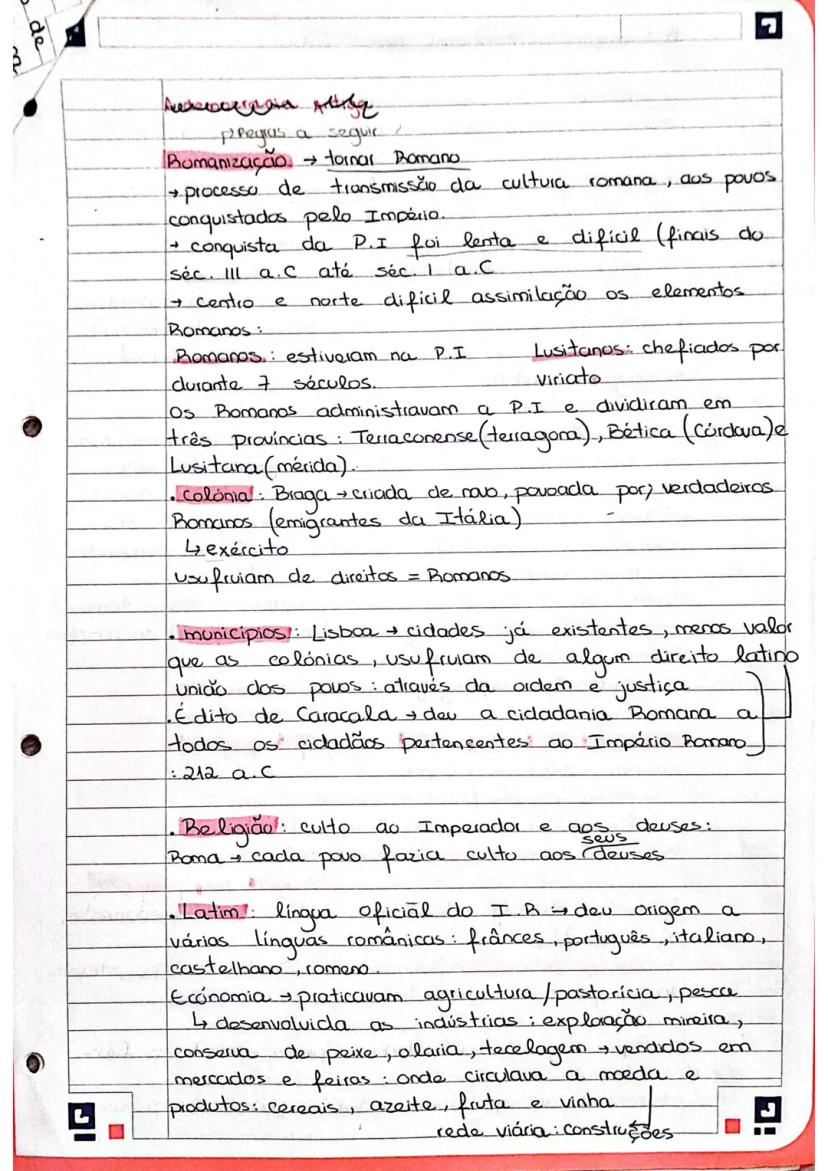 de
pRegras a seguir
Romanização → tornar Romano
→ processo de transmissão da cultura romana, aos povos
conquistados pelo Império.
→ conquista da P.I foi lenta e difícil (finais do
séc. III a.C até séc. I a.C
→ centro e norte difícil assimilação os elementos
Romanos:
Romanos: estiveram na P.I Lusitanos: chefiados por
durante 7 séculos. viriato
Os Romanos administravam a P.I e dividiram em
três províncias: Terraconense (terragona), Bética (Córdova) e
Lusitana (mérida).
. colónia: Braga → criada de novo, povoada por; verdadeiros
Romanos (emigrantes da Itália)
↳ exército
usufruiam de direitos = Romanos
. municípios: Lisboa → cidades já existentes, menos valor
que as colónias, usufruiam de algum direito latino
união dos povos: através da ordem e justiça
. Édito de Caracala → deu a cidadania Romana a
todos os cidadãos pertencentes ao Império Romano
: 212 a.C
. Religião: culto ao Imperador e aos deuses:
Roma → cada povo fazia culto aos seus deuses
. Latim: língua oficial do I.R → deu origem a
vários línguas românicas: frânces, português, italiano,
castelhano, romeno.
Ecónomia → praticavam agricultura/pastorícia, pesca
↳ desenvolvida as indústrias: exploração mineira,
conserva de peixe, olaria, tecelagem → vendidos em
mercados e feiras: onde circulava a moeda e
produtos: cereais, azeite, fruta e vinha
rede viária: construções